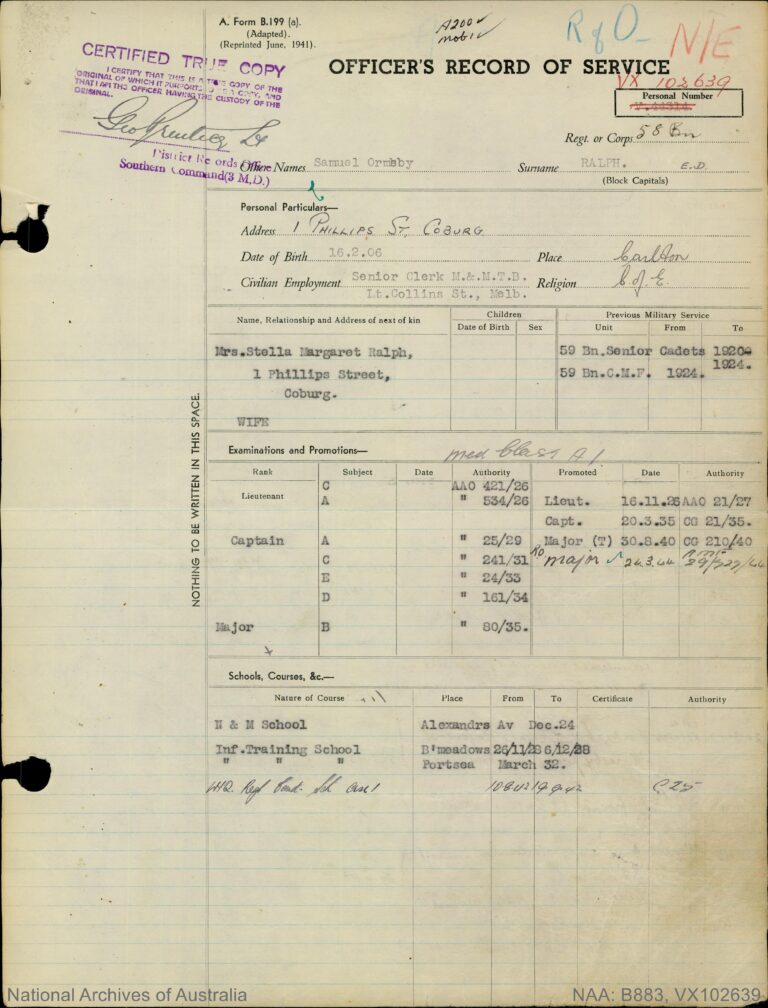 A. Form B.199 (a).
(Adapted).
(Reprinted June, 1941).
A200
mob1
R of O
N/E
OFFICER'S RECORD OF SERVICE
VX 102639
Personal Number
CERTIFIED TRUE COPY
I CERTIFY THAT THIS IS A TRUE COPY OF THE
ORIGINAL OF WHICH IT PURPORTS TO BE A COPY, AND
THAT I AM THE OFFICER HAVING THE CUSTODY OF THE
ORIGINAL.
Lt
District Records Office
Southern Command (3 M.D.)
Regt. or Corps 58 Bn
Other Names Samuel Ormsby Surname RALPH. E.D.
(Block Capitals)
Personal Particulars—
Address 1 PHILLIPS ST. COBURG
Date of Birth 16.2.06 Place Carlton
Civilian Employment Senior Clerk M.&.M.T.B. Religion C. of E.
Lt.Collins St., Melb.
Name, Relationship and Address of next of kin Children Previous Military Service
Date of Birth Sex Unit From To
Mrs.Stella Margaret Ralph, 59 Bn.Senior Cadets 1920-
1924.
1 Phillips Street, 59 Bn.C.M.F. 1924.
Coburg.
WIFE
NOTHING TO BE WRITTEN IN THIS SPACE.
Examinations and Promotions— med Class A1
Rank Subject Date Authority Promoted Date Authority
C AAO 421/26
Lieutenant A " 534/26 Lieut. 16.11.26 AAO 21/27
Capt. 20.3.35 CG 21/35.
Captain A " 25/29 Major (T) 30.8.40 CG 210/40
C " 241/31 to major 24.3.44
E " 24/33
D " 161/34
Major B " 80/35.
Schools, Courses, &c.—
Nature of Course Place From To Certificate Authority
N & M School Alexandrs Av Dec.24
Inf.Training School B'meadows 26/11/28 6/12/28
" " " Portsea March 32.
LHQ Regt Comd. Sch 10 8 42 19 9 42 C25
National Archives of Australia
NAA: B883, VX102639